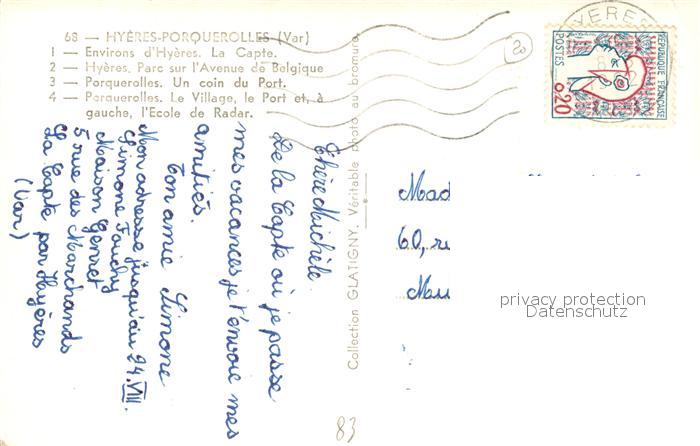 68 — HYÈRES-PORQUEROLLES (Var)
1 — Environs d'Hyères. La Capte.
2 — Hyères. Parc sur l'Avenue de Belgique
3 — Porquerolles. Un coin du Port.
4 — Porquerolles. Le Village, le Port et, à
gauche, l'Ecole de Radar.
Chère Michèle.
De la Capte où je passe
mes vacances je t'envoie mes
amitiés.
Ton amie Simone
Mon adresse jusqu'au 24.VIII.
Simone Fouchy
Maison Genret
5 rue des Marchands
La Capte par Hyères
(Var)
Collection GLATIGNY. Véritable photo au bromure.
20
HYERES
REPUBLIQUE FRANÇAISE
POSTES
0,20
Mad
60, ru
privacy protection
Datenschutz
83